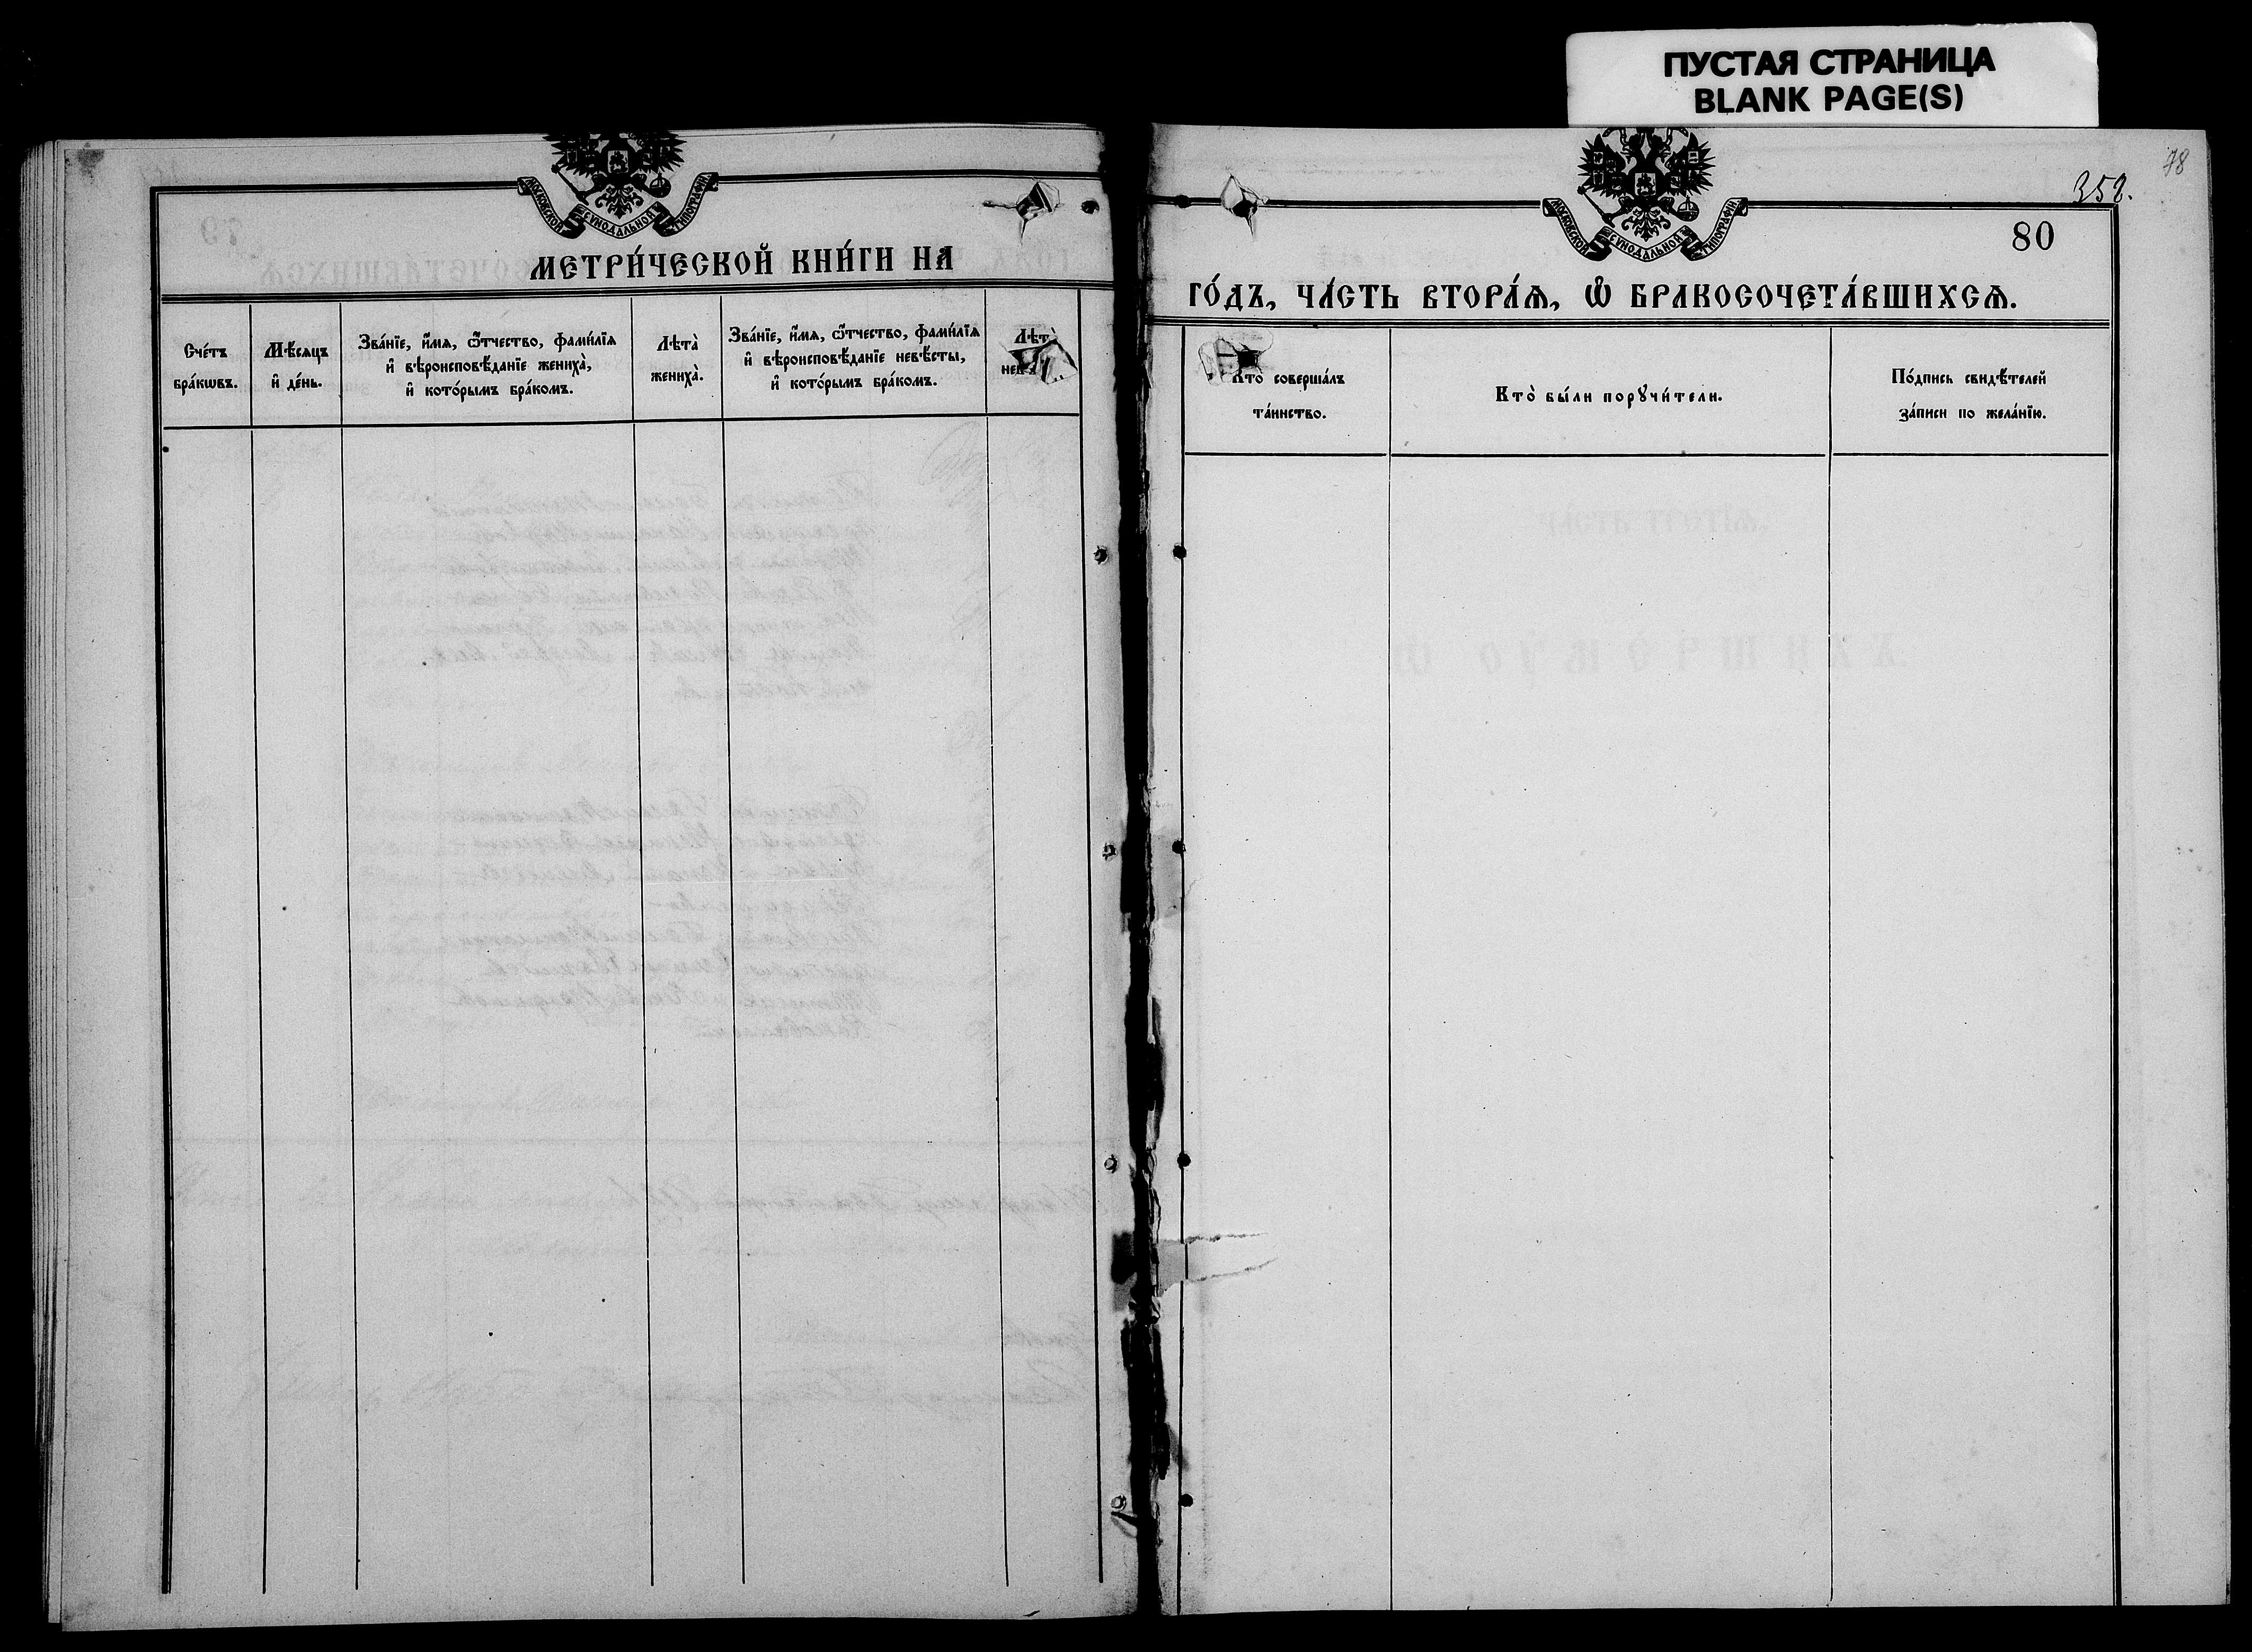 ПУСТАЯ СТРАНИЦА
BLANK PAGE(S)
78
352.
80
МОСКОВСКОЙ СѴНОДАЛЬНОЙ ТИПОГРАФІИ
МЕТРИ́ЧЕСКОЙ КНИ́ГИ НА
Сче́тъ
бра́кѡвъ.
Мѣ́сяцъ
и҆ де́нь.
Зва́нїе, и҆́мя, ѻ҆́тчество, фами́лїя
и҆ вѣроисповѣ́данїе жениха̀,
и҆ кото́рымъ бра́комъ.
Лѣта̀
жениха̀.
Зва́нїе, и҆́мя, ѻ҆́тчество, фами́лїя
и҆ вѣроисповѣ́данїе невѣ́сты,
и҆ кото́рымъ бра́комъ.
Лѣта̀
МОСКОВСКОЙ СѴНОДАЛЬНОЙ ТИПОГРАФІИ
ГО́ДЪ, ЧА́СТЬ ВТОРА́Ѧ, Ѽ БРАКОСОЧЕТА́ВШИХСѦ.
Кто̀ соверша́лъ
та́инство.
Кто̀ бы́ли порꙋчи́тели.
По́дпись свидѣ́телей
за́писи по жела́нїю.